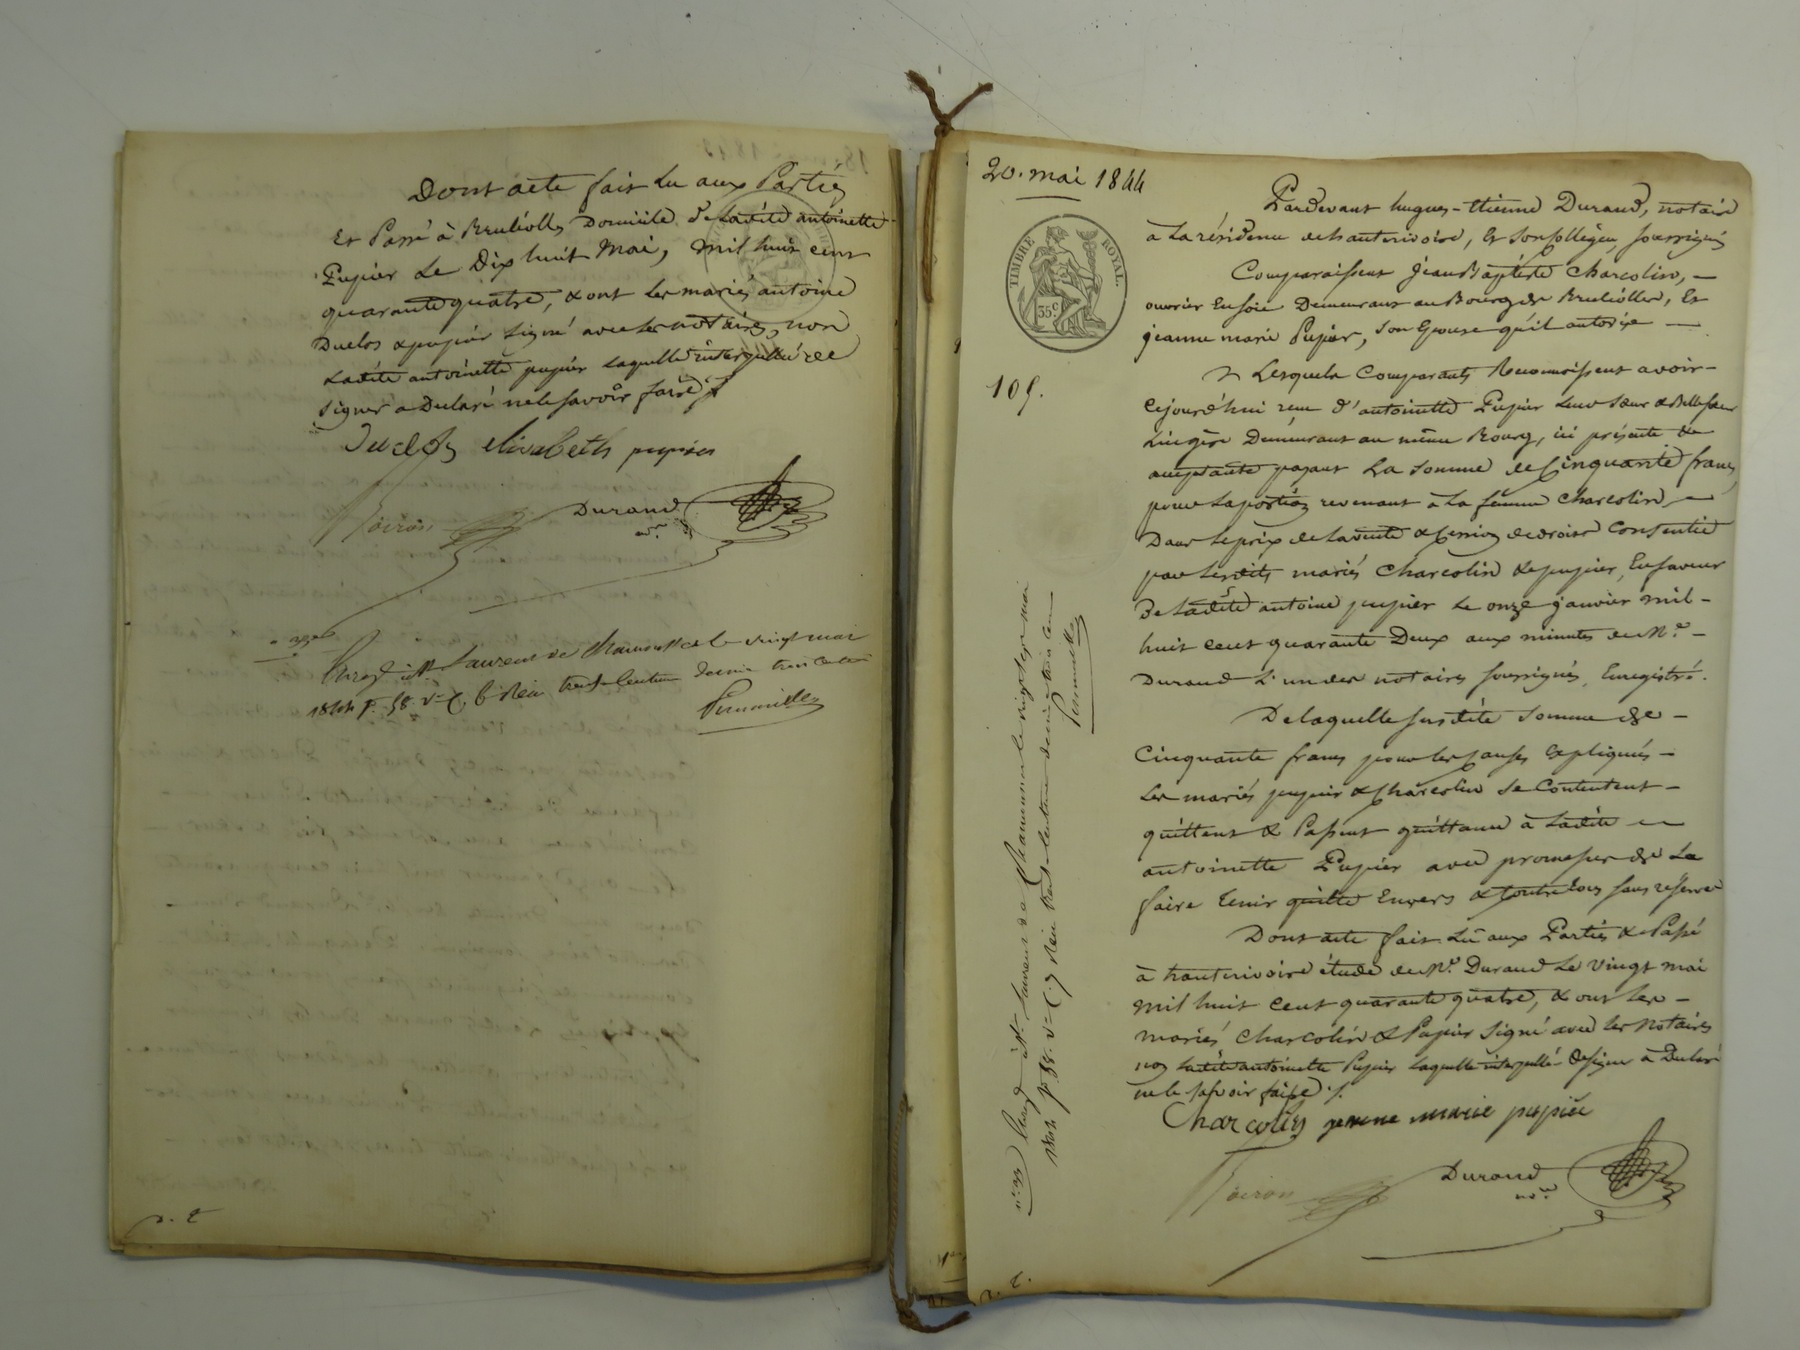 Dont acte fait Lu aux Parties
Et Passé à Brulioles, Domicile de Ladite antoinette
Pupier Le Dix huit Mai, mil huit cent
quarante quatre, & ont Les mariés antoine
Duclos & pupier signé avec Les notaires, non
Ladite antoinette pupier Laquelle interpellée de
signer a Déclaré ne le savoir faire
Duclos elisabeth pupier
Roiron Durand
nre.
Enregé à St. Laurent de Chamousset le vingt mai
1844 fo. 58. vo C. 6. Reçu trente centimes
20. mai 1844
TIMBRE ROYAL.
35c
109.
Pardevant hugues-Etienne Durand, notaire
à La résidence de hauterivoire, Et son Collègue, soussignés
Comparaissent Jean Baptiste Charcolin, —
ouvrier En soie Demeurant au Bourg de Brulioles, Et
jeanne marie Pupier, son Epouse qu'il autorise —
Lesquels Comparants Reconnoissent avoir —
Cejourd'hui reçu d'antoinette Pupier Leur sœur & Belle sœur
Lingère Demeurant au même Bourg, ici présente &
acceptante payant La somme de Cinquante francs,
pour La portion revenant à La femme Charcolin, —
Dans Le prix de La vente & Cession de droits Consentie
par Lesdits mariés Charcolin & pupier, En faveur
De Ladite antoine pupier Le onze janvier mil —
huit cent quarante Deux aux minutes de Me. —
Durand L'un des notaires soussignés, Enregistré.
De laquelle susdite somme de —
Cinquante francs pour les causes Expliquées —
Les mariés pupier & Charcolin se Contentent —
quittent & Passent quittance à Ladite —
antoinette Pupier avec promesse de La
faire tenir quitte Envers & Contre tous sans réserve
Dont acte fait Lu aux Parties & Passé
à hauterivoire étude de Me. Durand Le vingt mai
mil huit cent quarante quatre, & ont Les —
mariés Charcolin & Pupier signé avec les notaires
non Ladite antoinette Pupier Laquelle interpellée de signer à Déclaré
ne le savoir faire ./.
Charcolin jeanne marie pupier
Roiron Durand
nre.
Enregé à St. Laurent de Chamousset le vingt mai
1844 fo. 58. vo C. 7 Reçu trente centimes